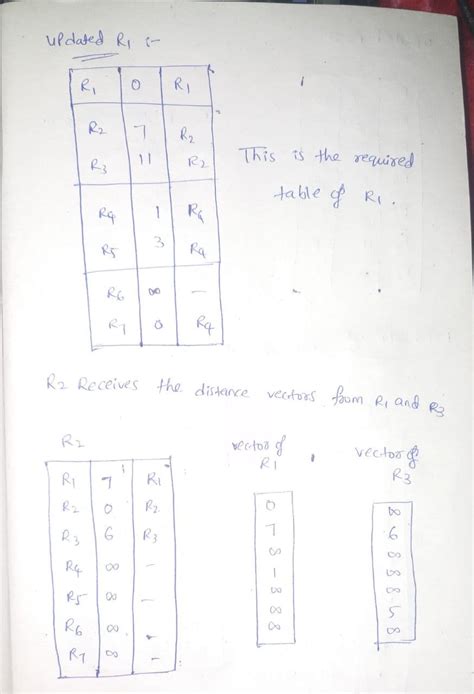 updated R1 :-
R1 0 R1
R2 7 R2
R3 11 R2
R4 1 R4
R5 3 R4
R6 ∞ -
R7 0 R4
This is the required
table of R1.
R2 Receives the distance vectors from R1 and R3
R2
R1 7 R1
R2 0 R2
R3 6 R3
R4 ∞ -
R5 ∞ -
R6 ∞ -
R7 ∞ -
vector of
R1
0
7
∞
1
∞
∞
∞
vector of
R3
∞
6
∞
∞
∞
5
∞